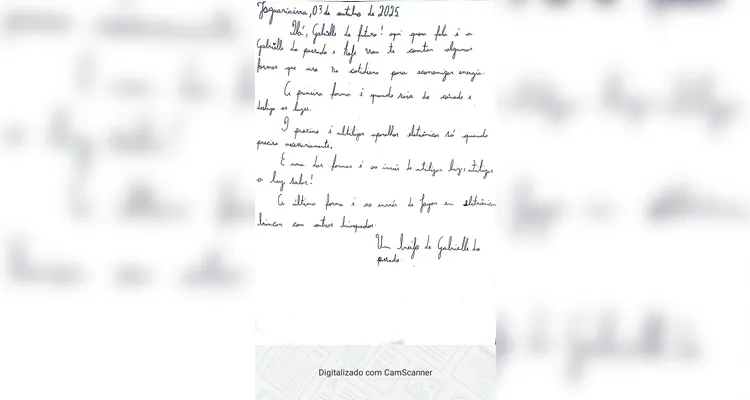 Jaguariaíva, 03 de outubro de 2025.
Olá, Gabrielle do futuro! aqui quem fala é a
Gabrielle do passado e hoje vim te contar algumas
formas que uso no cotidiano para economizar energia.
A primeira forma é quando saio do cômodo e
desligo as luzes.
O proximo é utilizar aparelhos eletrônicos só quando
preciso necessariamente.
E uma das formas é ao invés de utilizar luz, utilizar
a luz solar!
A última forma é ao invés de jogar em eletrônicos
brincar com outros brinquedos.
Um beijo da Gabrielle do
passado.
Digitalizado com CamScanner